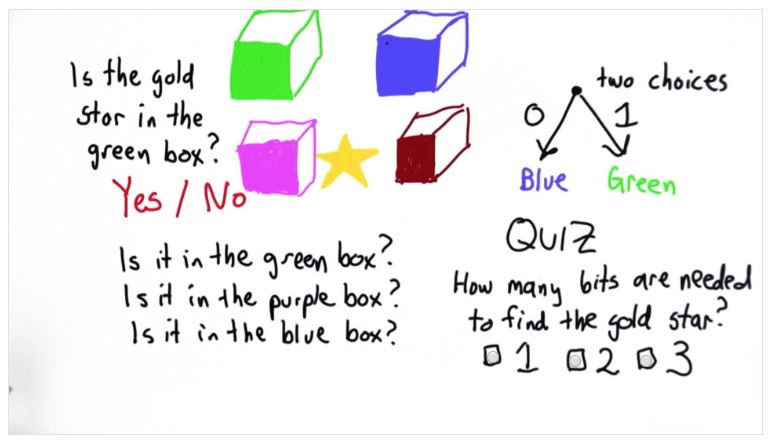 Is the gold
star in the
green box?
Yes / No
two choices
0 1
Blue Green
Is it in the green box?
Is it in the purple box?
Is it in the blue box?
QUIZ
How many bits are needed
to find the gold star?
1 2 3